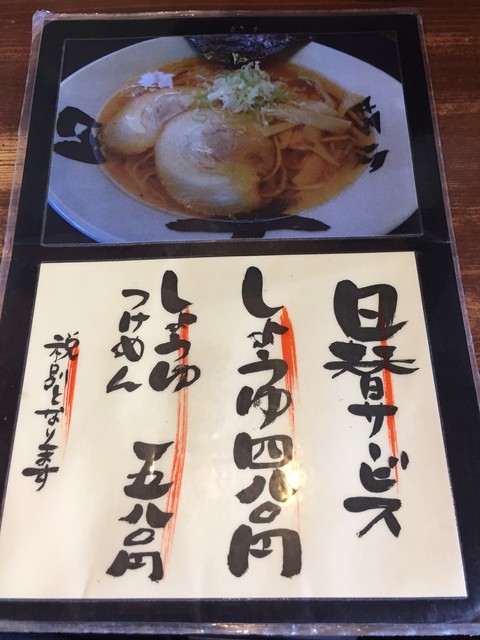 日替サービス
しょうゆ 四八〇円
しょうゆ
つけめん 五八〇円
税別となります